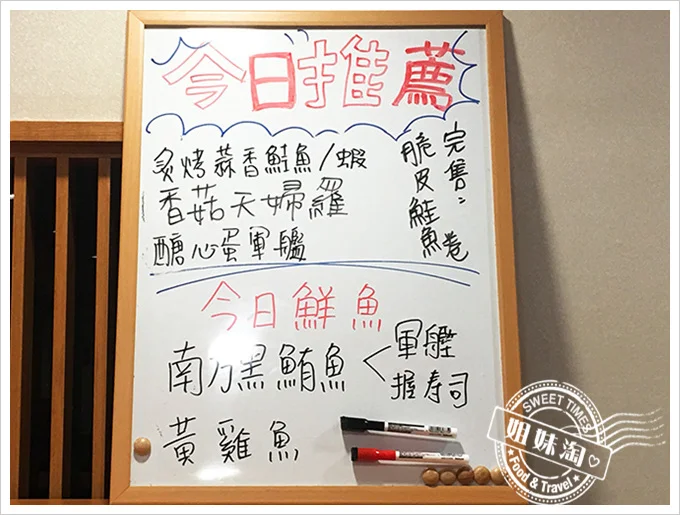 今日推薦
炙烤蒜香鮭魚/蝦
香菇天婦羅
醣心蛋軍艦
完售:
脆皮鮭魚卷
今日鮮魚
南方黑鮪魚<軍艦
握壽司
黃雞魚
SWEET TIMES
姐妹淘
Food & Travel